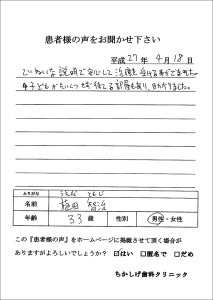 患者様の声をお聞かせ下さい
平成27年4月18日
ていねいな説明で安心して治療を受ける事ができました。
子どもがたいくつせず待てる部屋もあり、助かりました。
ふりがな
名前
年齢 33歳 性別 男性・女性
この『患者様の声』をホームページに掲載させて頂く場合が
ありますがよろしいでしょうか? ☑はい □匿名で □だめ
ちかしげ歯科クリニック